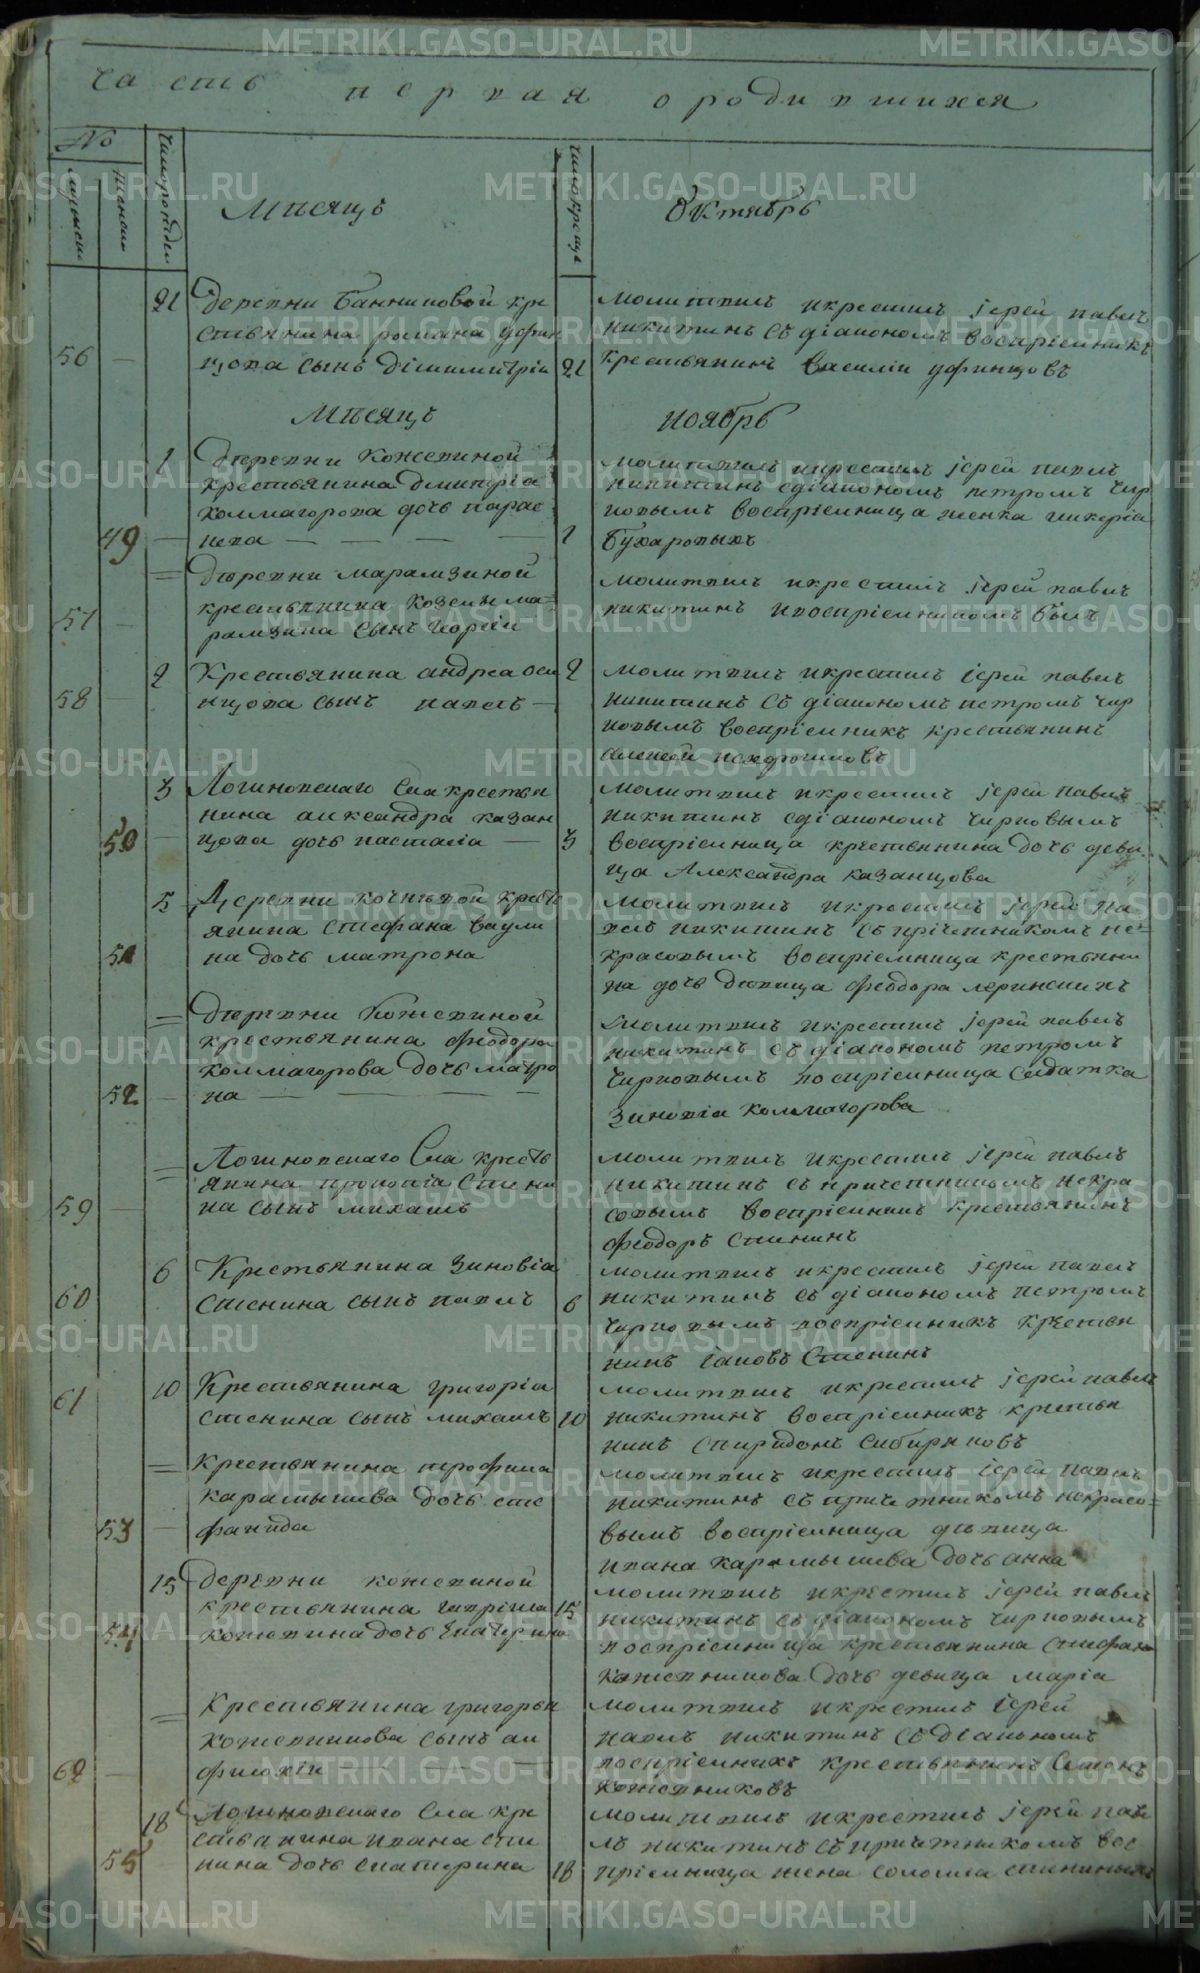 часть первая о родившихся
№
мужеск
женск
число рожде
Мѣсяцъ
число креще
Октябрь
21 деревни Банниковой кре
стьянина романа уфин
56 — цова сынъ Дімитрій 21
молитвилъ и крестилъ іерей павелъ
никитинъ съ діакономъ воспріемникъ
крестьянинъ василій уфинцовъ
Мѣсяцъ
ноябрь
1 Деревни Кожевиной
крестьянина Дмитріа
Колмагорова дочь парас
49 — кева — — — — 1
молитвилъ и крестилъ іерей павелъ
никитинъ сдіакономъ петромъ Чир
ковымъ воспріемница женка гликеріа
Бухаровыхъ
= Деревни марамзиной
крестьянина Козмы ма=
57 — рамзина сынъ Георгій
молитвилъ и крестилъ іерей павелъ
никитинъ и воспріемникомъ былъ
2 Крестьянина андреа Оси 2
58 — нцова сынъ павелъ —
молитвилъ и крестилъ іерей павелъ
никитинъ съ діакономъ петромъ Чир
ковымъ воспріемникъ крестьянинъ
алексей
3 Логиновскаго села крестья
нина александра казан
50 — цова дочь настасіа — 3
молитвилъ и крестилъ іерей павелъ
никитинъ сдіакономъ Чирковымъ
воспріемница крестьянина дочь деви
ца Александра казанцова
5 Деревни кочневой кресть
янина Стефана ваули
51 на дочь матрона
молитвилъ и крестилъ іерей па
велъ никитинъ съ причетникомъ не=
красовымъ воспріемница крестьяни
на дочь девица феодора
= Деревни Кожевиной
крестьянина феодора
Колмагорова дочь матро
52 — на — — — —
молитвилъ и крестилъ іерей павелъ
никитинъ съ діакономъ петромъ
Чирковымъ воспріемница солдатка
Зиновіа Колмагорова
= Логиновскаго Села кресть
янина прокопіа Стени
59 — на сынъ михаилъ
молитвилъ и крестилъ іерей павелъ
никитинъ съ причетникомъ некра
совымъ воспріемникъ крестьянинъ
феодоръ Стенинъ
6 Крестьянина Зиновіа
60 Стенина сынъ павелъ 6
молитвилъ и крестилъ іерей павелъ
никитинъ съ діакономъ петромъ
Чирковымъ воспріемникъ крестья
нинъ іаковъ Стенинъ
61 10 Крестьянина григоріа
Стенина сынъ михаилъ 10
молитвилъ и крестилъ іерей павелъ
никитинъ воспріемникъ крестья
нинъ Спиридонъ Сибиряковъ
= Крестьянина трофима
карамышева дочь сте
53 — фанида
молитвилъ и крестилъ іерей павелъ
никитинъ съ причетникомъ некрасо=
вымъ воспріемница девица
ивана карамышева дочь анна
15 деревни кожевиной
крестьянина гавріила 15
54 кожевина дочь екатерина
молитвилъ и крестилъ іерей павелъ
никитинъ съ діакономъ Чирковымъ
воспріемница крестьянина Стефана
Кожевникова дочь девица маріа
= Крестьянина григорья
кожевникова сынъ ам
62 — филохій — —
молитвилъ и крестилъ іерей
павелъ никитинъ съ діакономъ
воспріемникъ крестьянинъ Семонъ
кожевниковъ
18 Логиновскаго Села кре
стьянина ивана сте
55 — нина дочь екатерина 18
молитвилъ и крестилъ іерей паве
лъ никитинъ съ причетникомъ вос
пріемница жена соломеа стениныхъ